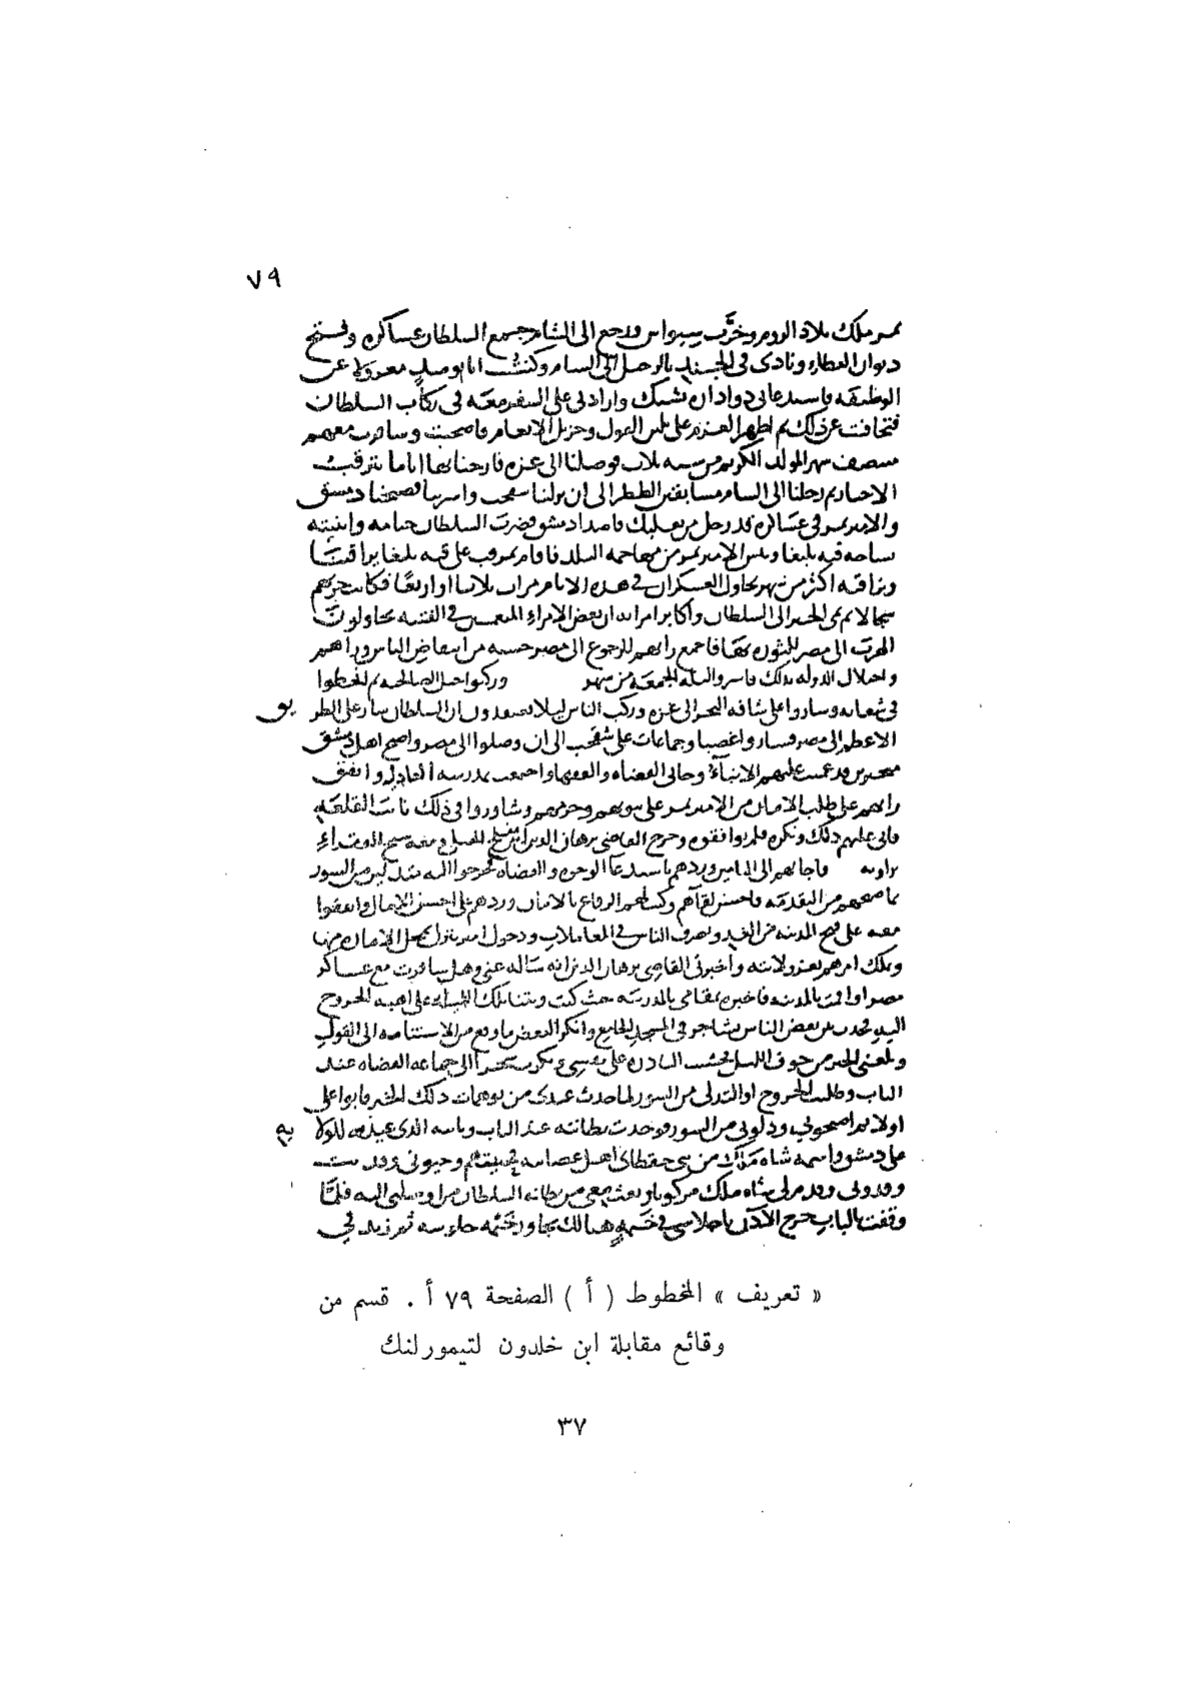 ٧٩
تمر ملك بلاد الروم وخرّب سيواس ورجع الى الشام جمع السلطان عساكره وفتح
ديوان العطاء ونادى فى الجند بالرحيل الى الشام وكنت انا يوميذ معزولا عن
الوظيفه فاستدعانى دواداره يشبك وارادنى على السفر معه فى ركاب السلطان
فتجافت عن ذلك ثم اظهر العزم على بلين القول وجزيل الانعام فاصحت وسافرت معهم
منتصف شهر المولد الكريم من سنه ثلاث فوصلنا الى غزه فارحنا بها اياما نترقب
الاخبار ثم رحلنا الى الشام مسابقين الططر الى ان نزلنا شقحب واسرينا فصبحنا دمشق
والامير تمر فى عساكره قد رحل من بعلبك قاصدا دمشق فضرب السلطان خيامه وابنيته
بساحه قبه يلبغا ويس الامير تمر من مهاجمه البلد فاقام بمرقب على قبه يلبغا يراقبنا
ونراقبه اكثر من شهر تجاول العسكران فى هذه الايام مرات ثلاثا او اربعا فكانت حربهم
سجالا ثم نمى الخبر الى السلطان واكابر امرائه ان بعض الامراء المنغمسين فى الفتنه يحاولون
الهرب الى مصر للثوره بها فاجمع رايهم للرجوع الى مصر خشيه من انتقاض الناس وراهم
واختلال الدوله بذلك فاسروا ليله الجمعه من شهر وركبوا جبل الصالحيه ثم انحطوا
فى شعابه وساروا على شافه البحر الى غزه وركب الناس ليلا يعتقدون ان السلطان سار على الطر
يق
الاعظم الى مصر فساروا عصبا وجماعات على شقحب الى ان وصلوا الى مصر واصبح اهل دمشق
متحيرين قد عميت عليهم الانباء وجانى القضاه والفقها واجتمعت بمدرسه العادليه واتفق
رايهم على طلب الامان من الامير تمر على بيوتهم وحرمهم وشاوروا فى ذلك نائب القلعه
فابى عليهم ذلك ونكره فلم يوافقوه وخرج القاضى برهان الدين ابن مفلح الحنبلى ومعه شيخ الفقراء
بزاويه فاجابهم الى التامين وردهم باستدعا الوجوه والقضاه فخرجوا اليه متدلين من السور
بما صحبهم من التقدمه فاحسن لقاهم وكتب لهم الرقاع بالامان وردهم على احسن الامال واتفقوا
معه على فتح المدينه من الغد وتصرف الناس فى المعاملات ودخول امير ينزل بمحل الاماره منها
ويملك امرهم بعز ولايته واخبرنى القاضى برهان الدين انه ساله عنى وهل سافرت مع عساكر
مصر او اقمت بالمدينه فاخبره بمقامى بالمدرسه حيث كنت وبتنا تلك الليله على اهبه الخروج
اليه فحدث بين بعض الناس تشاجر فى المسجد الجامع وانكر البعض ما وقع من الاستنامه الى القول
وبلغنى الخبر من جوف الليل فخشيت البادره على نفسى وبكرت سحرا الى جماعه القضاه عند
الباب وطلبت الخروج او التدلى من السور لما حدث عندى من توهمات ذلك الخبر فابوا على
اولا ثم اصحوا لى ودلونى من السور فوجدت بطانته عند الباب ونايبه الذى عينه للولا
يه
على دمشق واسمه شاه ملك من بنى جقطاى اهل عصابته فحييتهم وحيونى وفديت
وفدونى وقدم لى شاه ملك مركوبا وبعث معى من بطانه السلطان من اوصلنى اليه فلما
وقفت بالباب خرج الاذن باجلاسى فى خيمه هنالك تجاور خيمه جلوسه ثم زيد فى
« تعريف » المخطوط ( أ ) الصفحة ٧٩ أ . قسم من
وقائع مقابلة ابن خلدون لتيمورلنك
٣٧